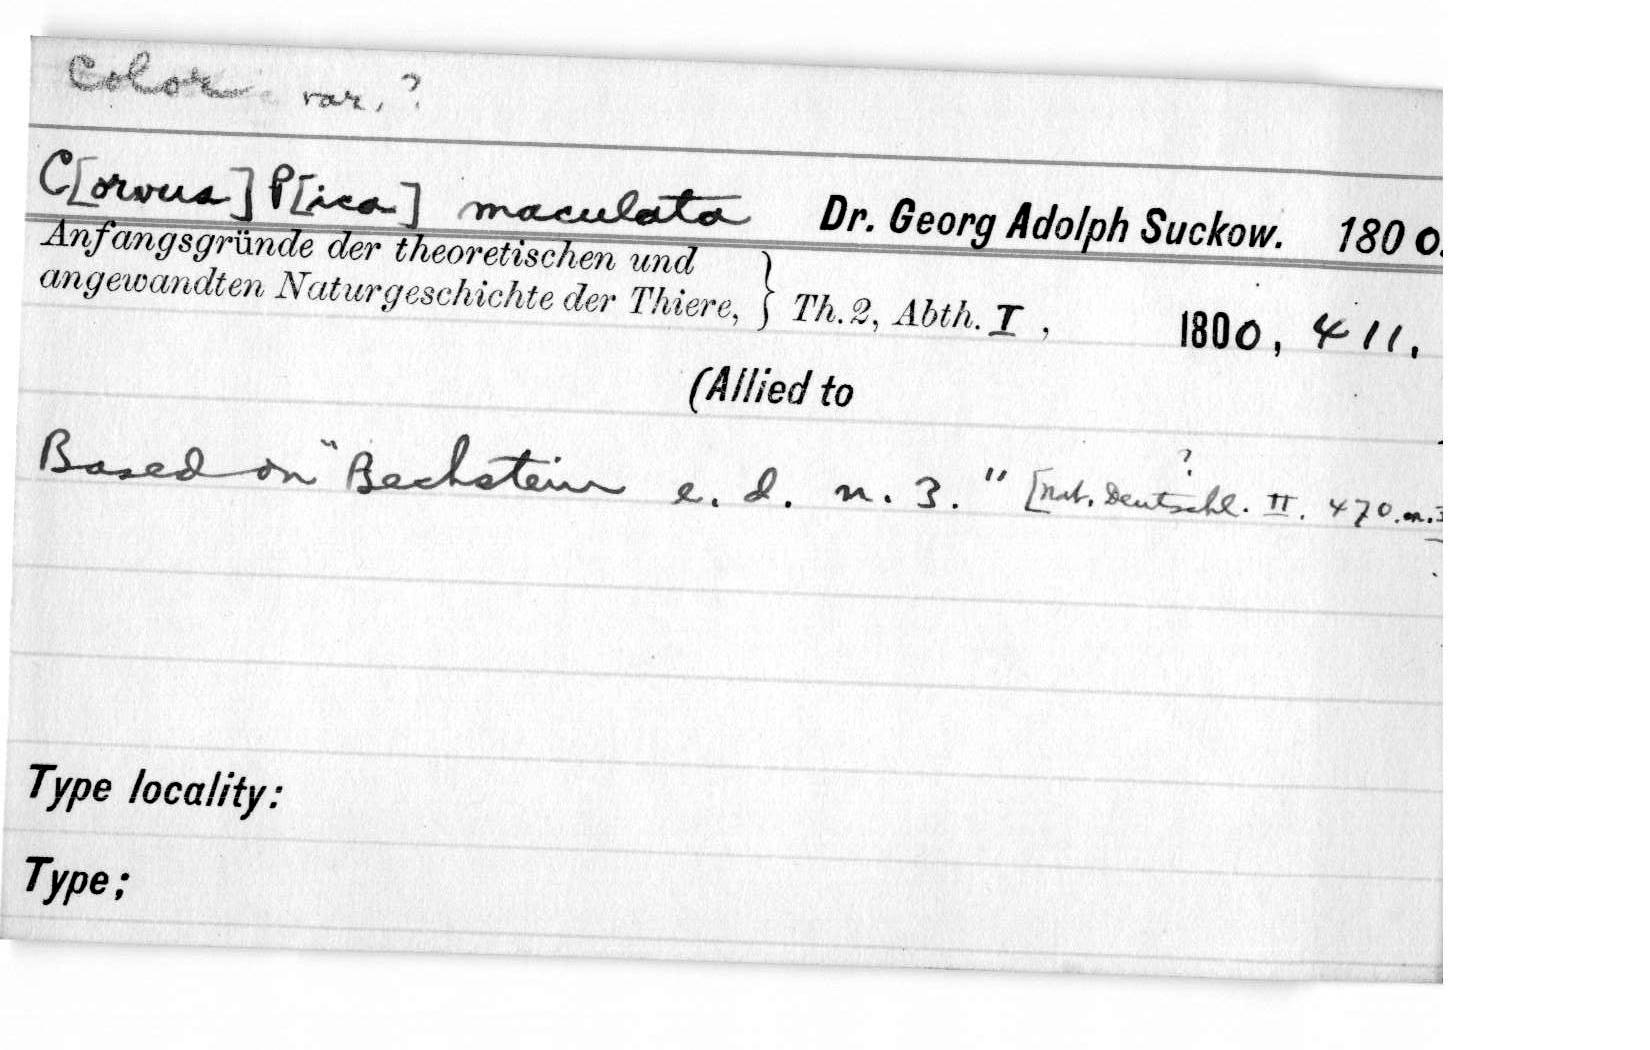 Color var. ?
C[orvus] P[ica] maculata Dr. Georg Adolph Suckow. 1800.
Anfangsgründe der theoretischen und
angewandten Naturgeschichte der Thiere, } Th. 2, Abth. I, 1800, 411.
(Allied to
Based on "Bechstein e. d. n. 3." [Nat. Deutschl. II. 470. n. 3
?
Type locality:
Type;